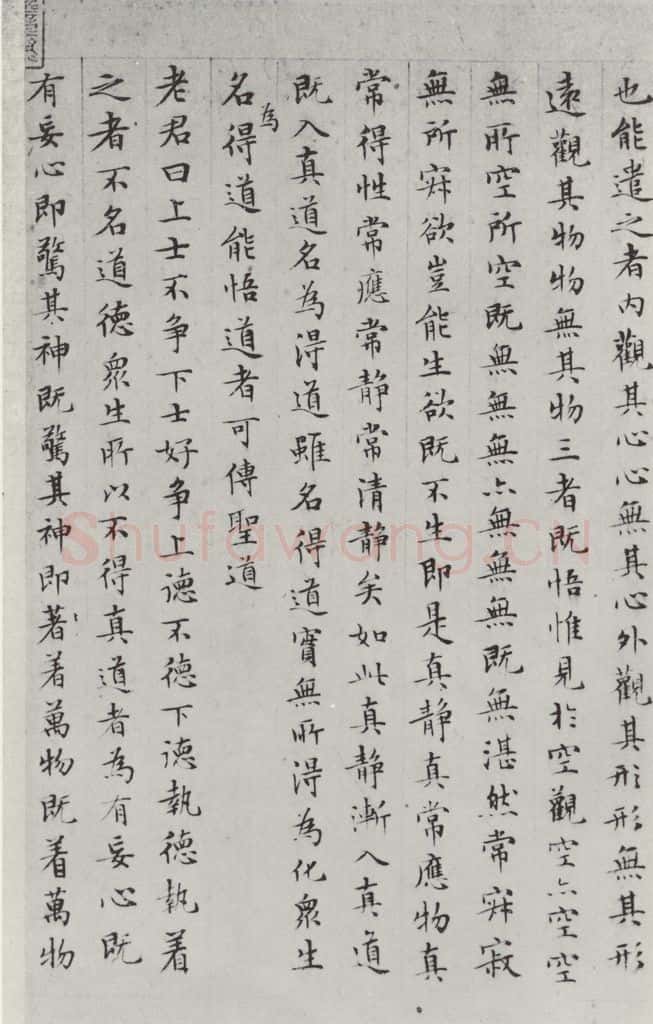 也能遣之者内觀其心心無其心外觀其形形無其形
遠觀其物物無其物三者既悟惟見於空觀空亦空空
無所空所空既無無無亦無無無既無湛然常寂寂
無所寂欲豈能生欲既不生即是真静真常應物真
常得性常應常静常清静矣如此真静漸入真道
既入真道名為得道雖名得道實無所得為化衆生
名為得道能悟道者可傳聖道
老君曰上士不争下士好争上德不德下德執德執着
之者不名道德衆生所以不得真道者為有妄心既
有妄心即驚其神既驚其神即著着萬物既着萬物
Shufawang.CN